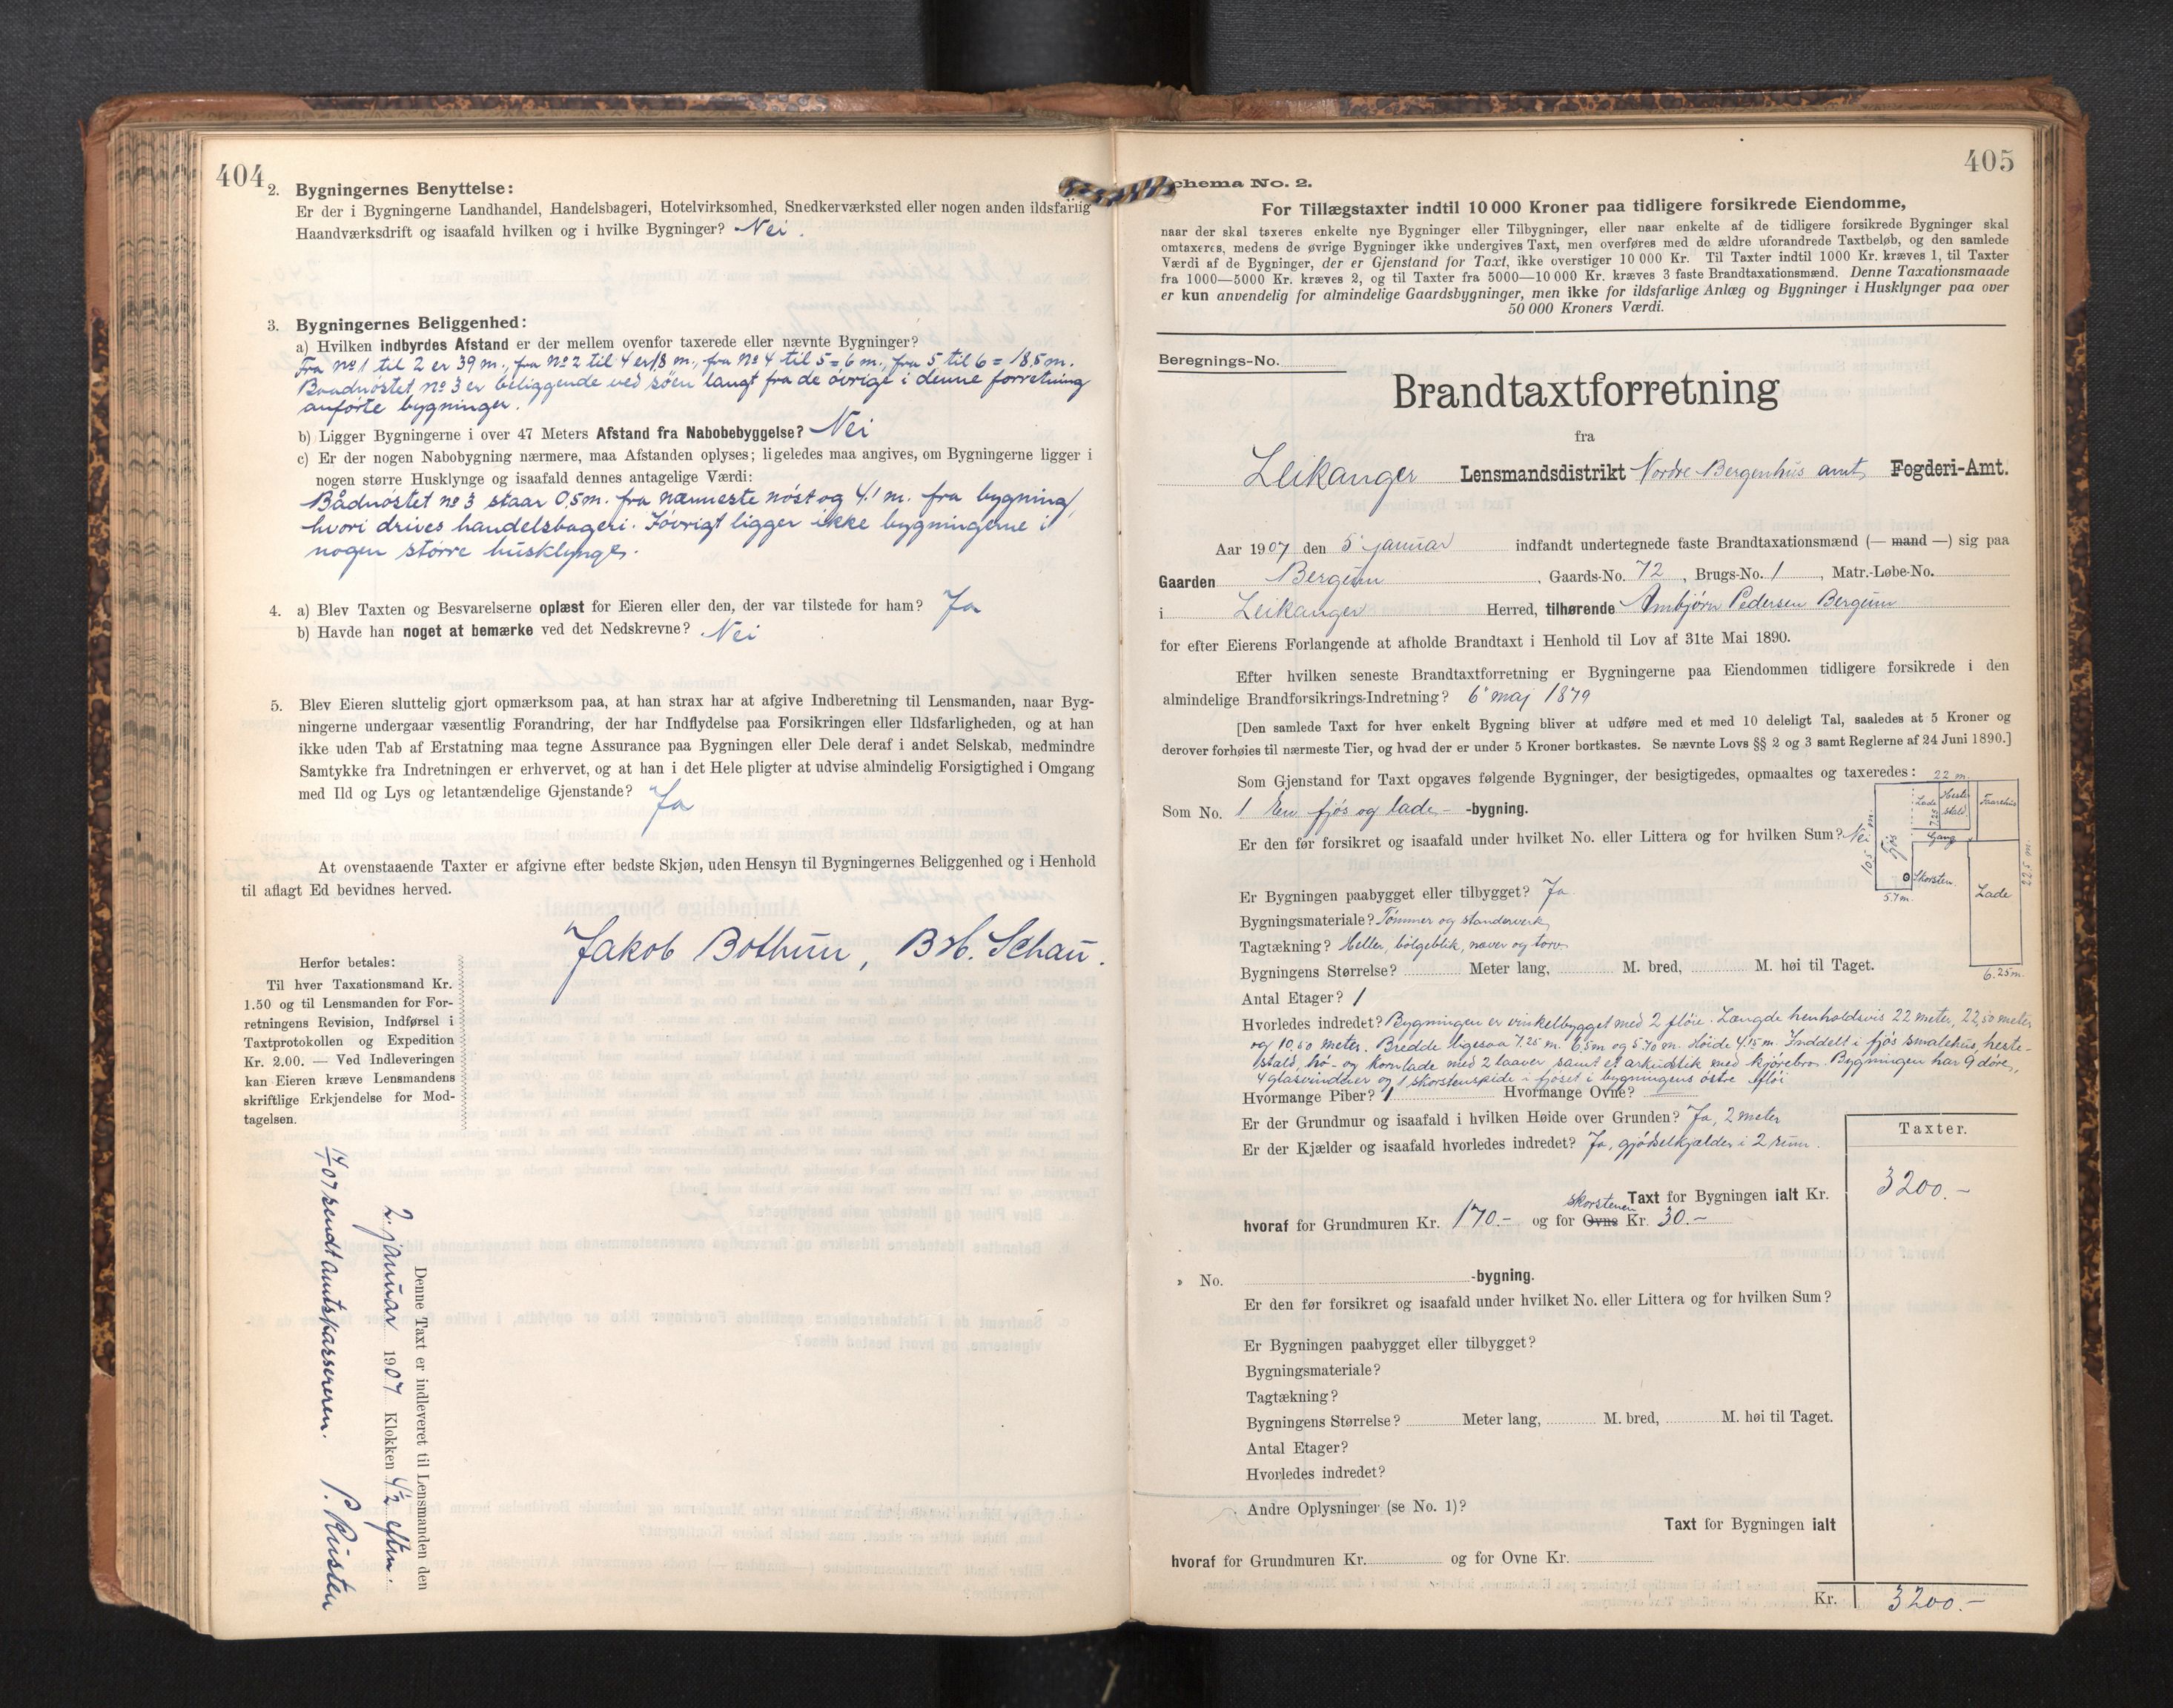 404
2. Bygningernes Benyttelse:
Er der i Bygningerne Landhandel, Handelsbageri, Hotelvirksomhed, Snedkerværksted eller nogen anden ildsfarlig
Haandværksdrift og isaafald hvilken og i hvilke Bygninger? Nei.
3. Bygningernes Beliggenhed:
a) Hvilken indbyrdes Afstand er der mellem ovenfor taxerede eller nævnte Bygninger?
Fra No 1 til 2 er 39 m., fra No 2 til 4 er 18 m., fra No 4 til 5 = 6 m., fra 5 til 6 = 18,5 m.
Baadnøstet No 3 er beliggende ved søen langt fra de øvrige i denne forretning
anførte bygninger.
b) Ligger Bygningerne i over 47 Meters Afstand fra Nabobebyggelse? Nei
c) Er der nogen Nabobygning nærmere, maa Afstanden oplyses; ligeledes maa angives, om Bygningerne ligger i
nogen større Husklynge og isaafald dennes antagelige Værdi:
Bådnøstet no 3 staar 0,5 m. fra nærmeste nøst og 4,1 m. fra bygning,
hvori drives handelsbageri. Iøvrigt ligger ikke bygningerne i
nogen større husklynge.
4. a) Blev Taxten og Besvarelserne oplæst for Eieren eller den, der var tilstede for ham? Ja
b) Havde han noget at bemærke ved det Nedskrevne? Nei
5. Blev Eieren sluttelig gjort opmærksom paa, at han strax har at afgive Indberetning til Lensmanden, naar Byg-
ningerne undergaar væsentlig Forandring, der har Indflydelse paa Forsikringen eller Ildsfarligheden, og at han
ikke uden Tab af Erstatning maa tegne Assurance paa Bygningen eller Dele deraf i andet Selskab, medmindre
Samtykke fra Indretningen er erhvervet, og at han i det Hele pligter at udvise almindelig Forsigtighed i Omgang
med Ild og Lys og letantændelige Gjenstande? Ja
At ovenstaaende Taxter er afgivne efter bedste Skjøn, uden Hensyn til Bygningernes Beliggenhed og i Henhold
til aflagt Ed bevidnes herved.
Jakob Bothun, B. H. Schau.
Herfor betales:
Til hver Taxationsmand Kr.
1.50 og til Lensmanden for For-
retningens Revision, Indførsel i
Taxtprotokollen og Expedition
Kr. 2.00. — Ved Indleveringen
kan Eieren kræve Lensmandens
skriftlige Erkjendelse for Mod-
tagelsen.
Denne Taxt er indleveret til Lensmanden den
2. januar 1907 Klokken 4½ eftm.
07 sendt amtskassereren. P. Risten
405
chema No. 2.
For Tillægstaxter indtil 10 000 Kroner paa tidligere forsikrede Eiendomme,
naar der skal taxeres enkelte nye Bygninger eller Tilbygninger, eller naar enkelte af de tidligere forsikrede Bygninger skal
omtaxeres, medens de øvrige Bygninger ikke undergives Taxt, men overføres med de ældre uforandrede Taxtbeløb, og den samlede
Værdi af de Bygninger, der er Gjenstand for Taxt, ikke overstiger 10 000 Kr. Til Taxter indtil 1000 Kr. kræves 1, til Taxter
fra 1000—5000 Kr. kræves 2, og til Taxter fra 5000—10 000 Kr. kræves 3 faste Brandtaxationsmænd. Denne Taxationsmaade
er kun anvendelig for almindelige Gaardsbygninger, men ikke for ildsfarlige Anlæg og Bygninger i Husklynger paa over
50 000 Kroners Værdi.
Beregnings-No.
Brandtaxtforretning
fra
Leikanger Lensmandsdistrikt Nordre Bergenhus amt Fogderi-Amt.
Aar 1907 den 5 januar indfandt undertegnede faste Brandtaxationsmænd (— mand —) sig paa
Gaarden Bergum, Gaards-No. 72, Brugs-No. 1, Matr.-Løbe-No.
i Leikanger Herred, tilhørende Ambjørn Pedersen Bergum
for efter Eierens Forlangende at afholde Brandtaxt i Henhold til Lov af 31te Mai 1890.
Efter hvilken seneste Brandtaxtforretning er Bygningerne paa Eiendommen tidligere forsikrede i den
almindelige Brandforsikrings-Indretning? 6 maj 1879
[Den samlede Taxt for hver enkelt Bygning bliver at udføre med et med 10 deleligt Tal, saaledes at 5 Kroner og
derover forhøies til nærmeste Tier, og hvad der er under 5 Kroner bortkastes. Se nævnte Lovs §§ 2 og 3 samt Reglerne af 24 Juni 1890.]
Som Gjenstand for Taxt opgaves følgende Bygninger, der besigtigedes, opmaaltes og taxeredes:
22 m.
Lade
Heste
stald
Faarehus
7.25
Gang
10,5 m.
fjøs
Skorsten
5.7 m.
Lade
22.5 m.
6.25 m.
Som No. 1 En fjøs og lade -bygning.
Er den før forsikret og isaafald under hvilket No. eller Littera og for hvilken Sum? Nei
Er Bygningen paabygget eller tilbygget? Ja
Bygningsmateriale? Tømmer og standerverk
Tagtækning? Heller, bølgeblik, næver og torv
Bygningens Størrelse? Meter lang, M. bred, M. høi til Taget.
Antal Etager? 1
Hvorledes indredet? Bygningen er vinkelbygget med 2 fløie. Længde henholdsvis 22 meter, 22,50 meter
og 10,50 meter. Bredde ligesaa 7.25 m. 6.5m og 5.70 m. Høide 4.15 m. Inddelt i fjøs smalehus, heste-
stald, hø- og kornlade med 2 laaver, samt et arkudstik med kjørebro. Bygningen har 9 døre,
4 glasvinduer og 1 skorstenspide i fjøset i bygningens østre fløi
Hvormange Piber? 1 Hvormange Ovne?
Er der Grundmur og isaafald i hvilken Høide over Grunden? Ja, 2 meter
Er der Kjælder og isaafald hvorledes indredet? Ja, gjødselkjælder i 2 rum.
Taxter.
Taxt for Bygningen ialt Kr. 3200.-
hvoraf for Grundmuren Kr. 170.- og for Ovne skorstenen Kr. 30.-
» No. -bygning.
Er den før forsikret og isaafald under hvilket No. eller Littera og for hvilken Sum?
Er Bygningen paabygget eller tilbygget?
Bygningsmateriale?
Tagtækning?
Bygningens Størrelse? Meter lang, M. bred, M. høi til Taget.
Antal Etager?
Hvorledes indredet?
Andre Oplysninger (se No. 1)?
Taxt for Bygningen ialt
hvoraf for Grundmuren Kr. og for Ovne Kr.
Kr. 3200.-